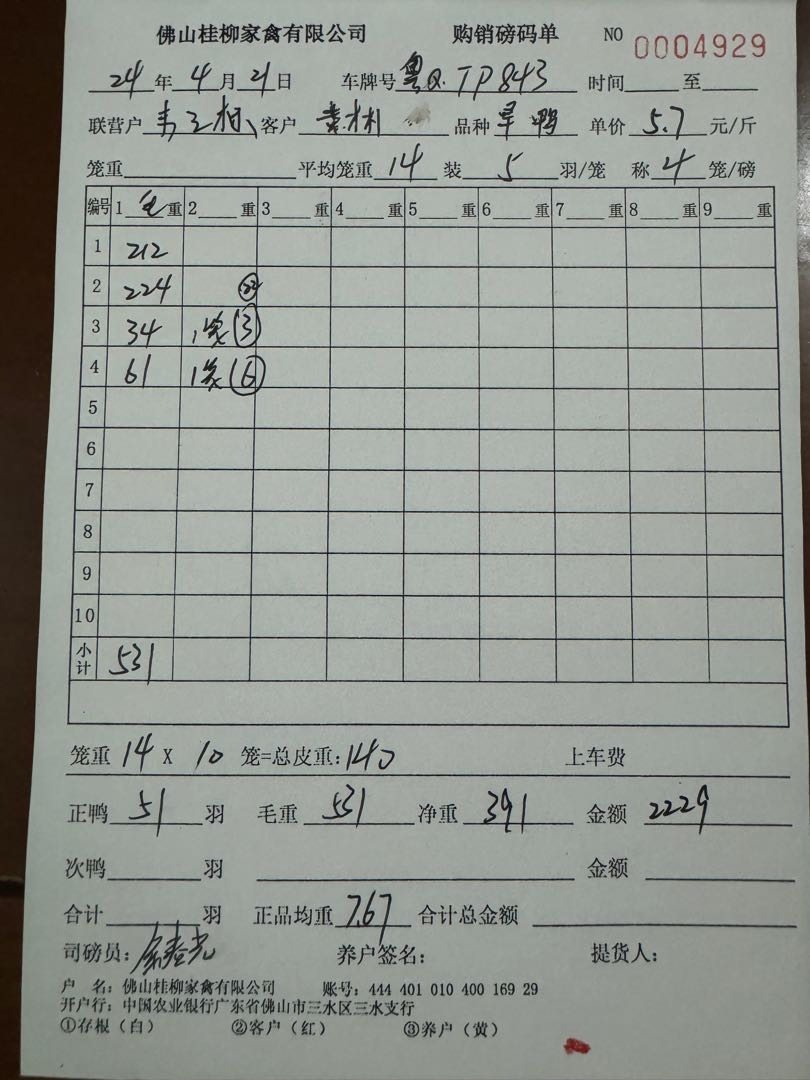 佛山桂柳家禽有限公司 购销磅码单 NO 0004929
24年4月21日 车牌号 粤Q.TP843 时间 至
联营户 客户 品种 旱鸭 单价 5.7 元/斤
笼重 平均笼重 14 装 5 羽/笼 称 4 笼/磅
编号 1 毛 重 2 重 3 重 4 重 5 重 6 重 7 重 8 重 9 重
1 212
2 224
3 34 1笼 (3)
4 61 1笼 (6)
5
6
7
8
9
10
小计 531
笼重 14 X 10 笼=总皮重:140 上车费
正鸭 51 羽 毛重 531 净重 391 金额 2229
次鸭 羽 金额
合计 羽 正品均重 7.67 合计总金额
司磅员: 养户签名: 提货人:
户 名: 佛山桂柳家禽有限公司 账号: 444 401 010 400 169 29
开户行: 中国农业银行广东省佛山市三水区三水支行
①存根(白) ②客户(红) ③养户(黄)